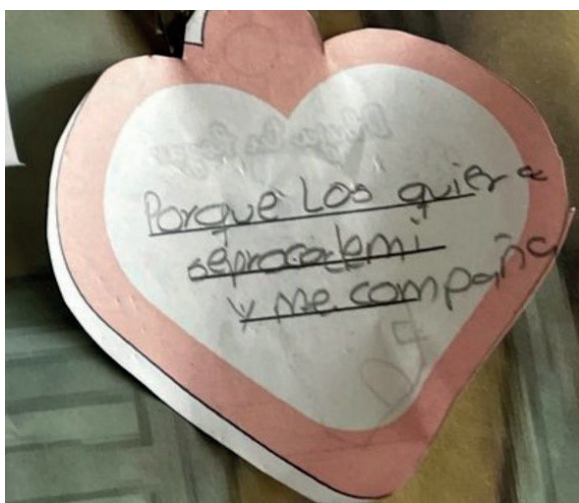 Porque Los quiere
seprocademi
y me compaña